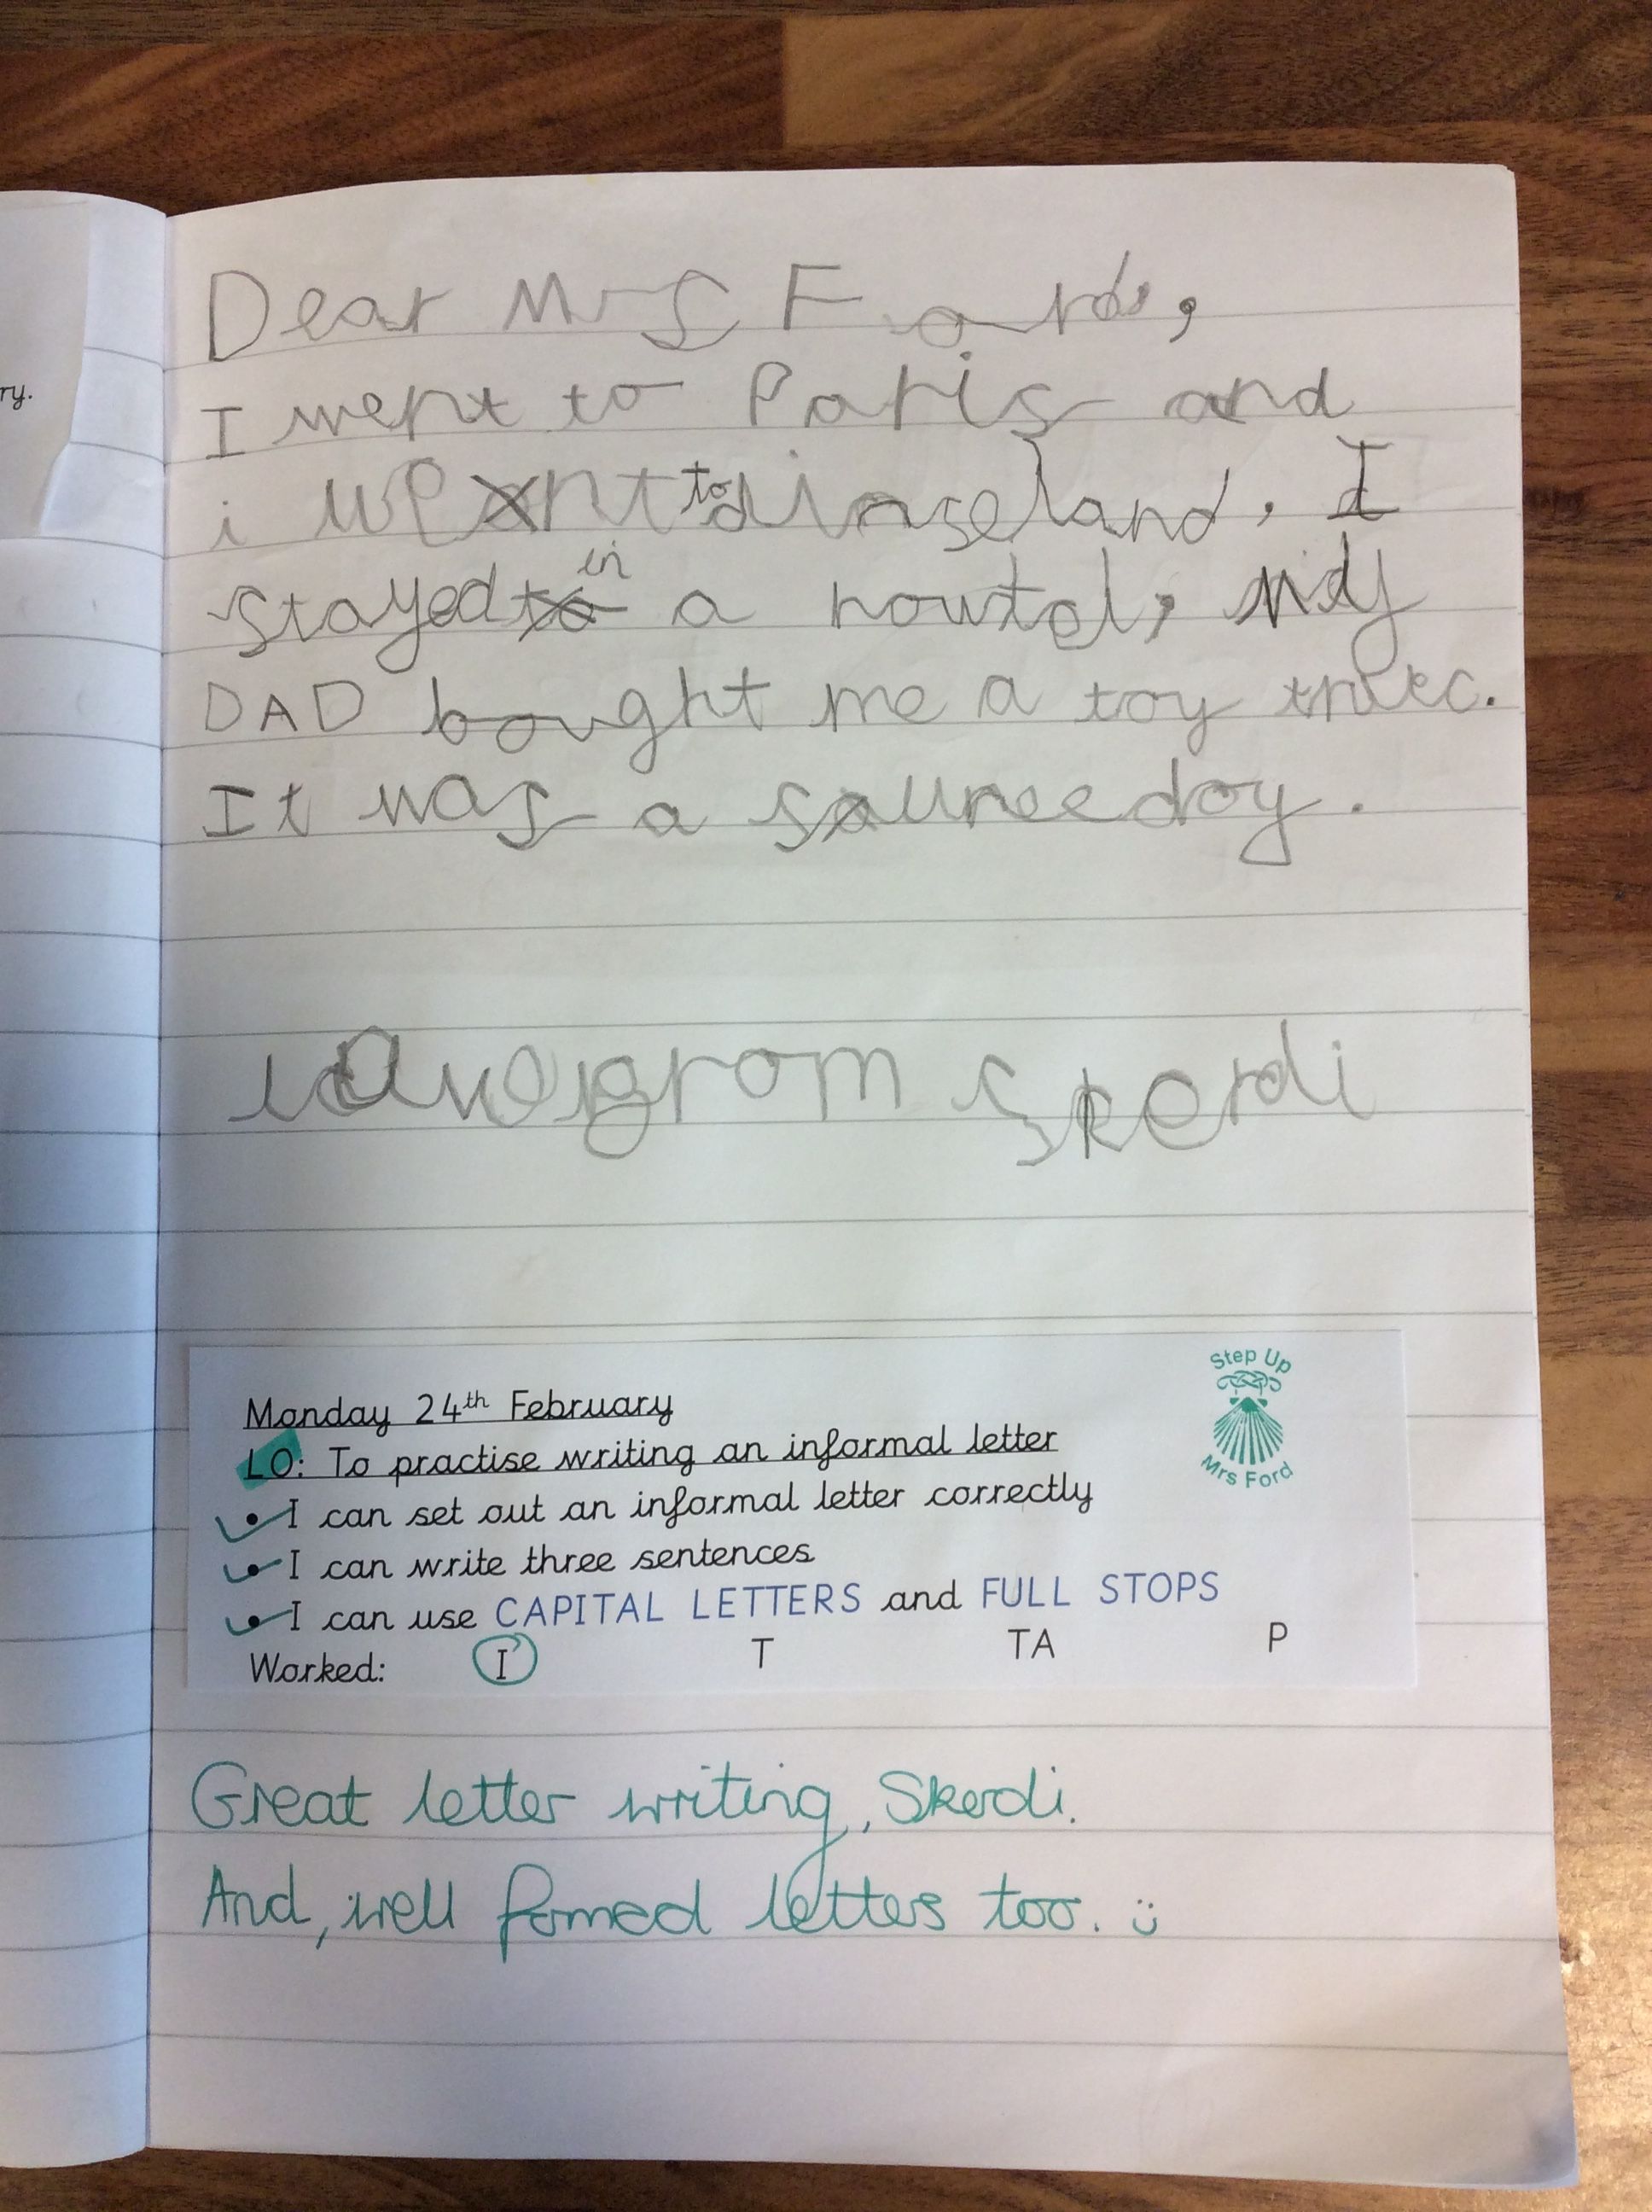 ry.
Dear Mrs Ford,
I went to Paris and
i went to dinseland. I
stayed in a houtel, My
DAD bought me a toy
It was a sunee day.
from Skerdi
Step Up
Mrs Ford
Monday 24th February
LO: To practise writing an informal letter
• I can set out an informal letter correctly
• I can write three sentences
• I can use CAPITAL LETTERS and FULL STOPS
Worked: I T TA P
Great letter writing, Skerdi.
And, well formed letters too. :)